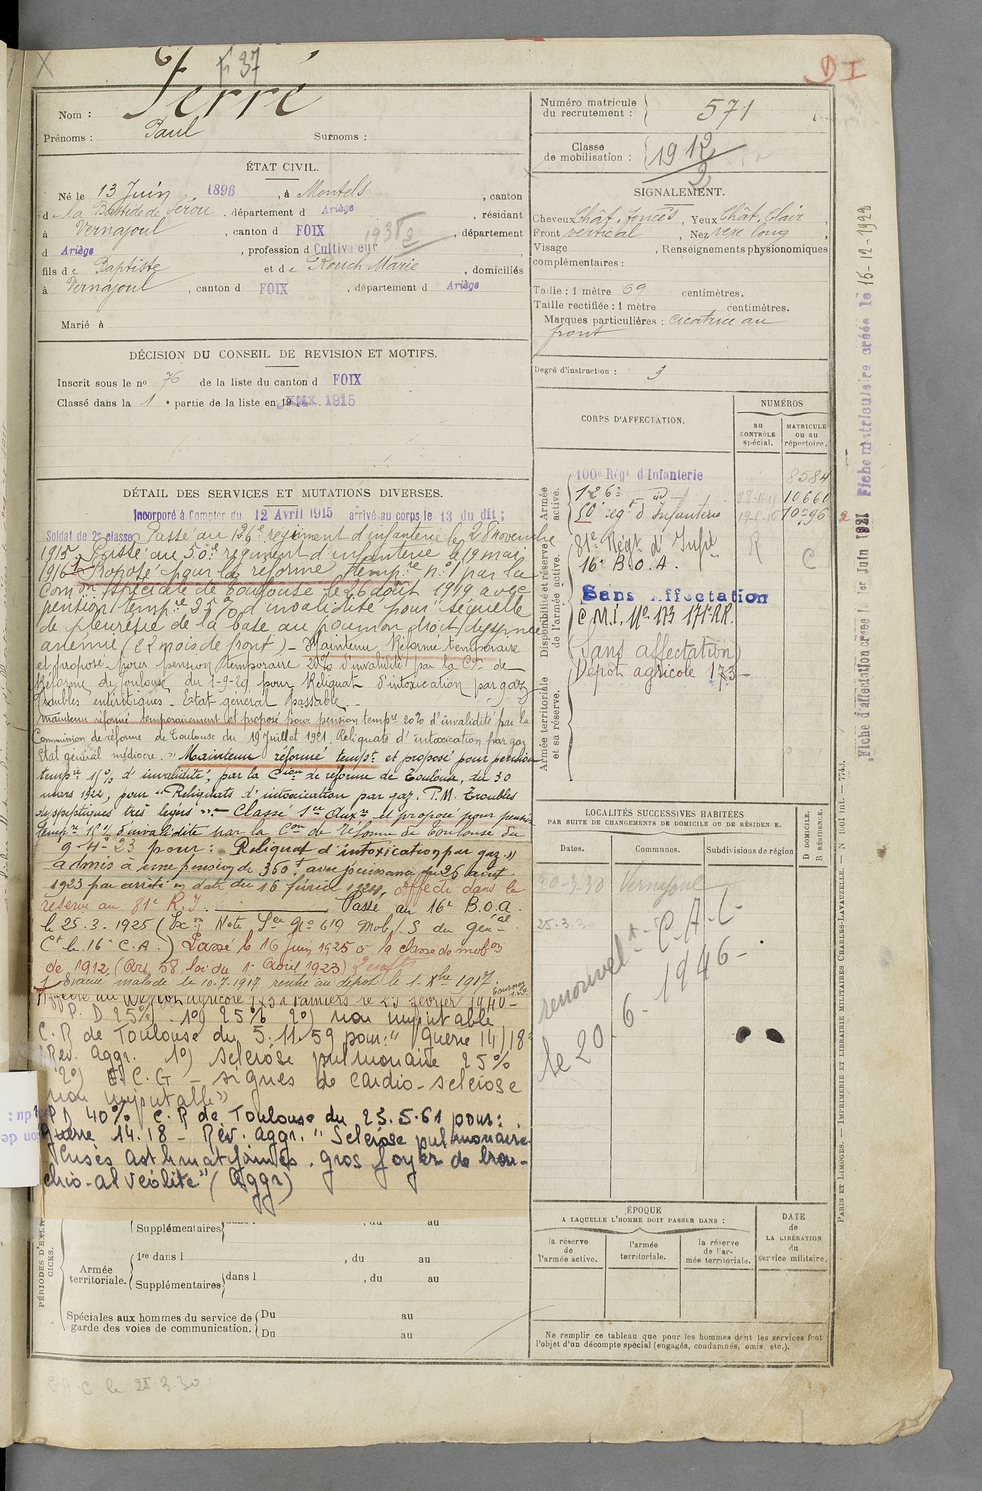 X
f 37
D I
Nom : Ferré
Prénoms : Paul Surnoms :
ÉTAT CIVIL.
Né le 13 Juin 1896, à Montels, canton
d La Bastide de Sérou, département d Ariège, résidant
à Vernajoul, canton d FOIX, département
d Ariège, profession d Cultivateur
fils de Baptiste et de Rouch Marie, domiciliés
à Vernajoul, canton d FOIX, département d Ariège
Marié à
DÉCISION DU CONSEIL DE REVISION ET MOTIFS.
Inscrit sous le no 76 de la liste du canton d FOIX
Classé dans la 1e partie de la liste en 1915
DÉTAIL DES SERVICES ET MUTATIONS DIVERSES.
Incorporé à Compter du 12 Avril 1915 arrivé au corps le 13 du dit ;
Soldat de 2e classe Passé au 126e régiment d'infanterie le 28 novembre
1915. Passé au 50e régiment d'infanterie le 19 mai
1916. Proposé pour la réforme tempre no 1 par la
Comon spéciale de Toulouse le 26 août 1919 avec
pension tempre 35% d'invalidité pour "séquelle
de pleurésie de la base au poumon droit dyspnée
anémie (22 mois de front) - Maintenu Réformé temporaire
et proposé pour pension temporaire 20% d'invalidité par la Con de
Réforme de Toulouse du 1-9-20 pour Reliquat d'intoxication par gaz
troubles entéritiques. Etat général passable.
Maintenu réformé temporairement et proposé pour pension tempre 20% d'invalidité par la
Commission de réforme de Toulouse du 19 Juillet 1921. Reliquats d'intoxication par gaz
Etat général médiocre. » Maintenu réformé tempt et proposé pour pension
tempre 15% d'invalidité, par la Cion de réforme de Toulouse, du 30
mars 1922, pour "Reliquats d'intoxication par gaz. P.M. Troubles
dyspeptiques très légers". Classé Sce auxre et proposé pour pension
tempre 15% d'invalidité par la Con de Réforme de Toulouse du
9-4-23 pour : Reliquat d'intoxication par gaz"
admis à une pension de 360f avec jouissance du 26 août
1923 par arrêté en date du 16 février 1924, affecté dans la
réserve au 81e R.I. Passé au 16e B.O.A.
le 25.3.1925 (Exon Note Sce No 619 Mob/S du génal
Ct le 16e C.A.) Passé le 16 juin 1925 à la classe de mobon
de 1912 (Art. 58 loi du 1er Avril 1923) 2 enfts
1 Evacué malade le 10.7.1917 rentré au dépôt le 1er Xbre 1917.
Affecté au Dépôt agricole 173 à Pamiers le 23 février 1940-
P. D 25% 1o) 25% 2o) non imputable
C.R de Toulouse du 5.11.59 pour : "Guerre 14/18
Rév. Aggr. 1o) sclérose pulmonaire 25%
2o) E.C.G - signes de cardio-sclérose
non imputable"
P.D 40% C.R de Toulouse du 23.5.61 pour :
guerre 14.18 - Rév. aggr. "Sclérose pulmonaire
gros foyer de bron-
chio-alvéolite" (Aggr)
PÉRIODES D'EXERCICES.
Supplémentaires dans l , du au
Armée territoriale. 1re dans l , du au
Supplémentaires dans l , du au
Spéciales aux hommes du service de garde des voies de communication. Du au
Du au
C A C le 25.3.30
Numéro matricule du recrutement : 571
Classe de mobilisation : 1912
2
SIGNALEMENT.
Cheveux Chât. foncés, Yeux Chât. clair
Front vertical, Nez long
Visage , Renseignements physionomiques
complémentaires :
Taille : 1 mètre 69 centimètres.
Taille rectifiée : 1 mètre centimètres.
Marques particulières : cicatrice au
front
Degré d'instruction : 3
CORPS D'AFFECTATION.
NUMÉROS
au CONTRÔLE spécial.
MATRICULE ou au répertoire.
Armée active.
Disponibilité et réserve de l'armée active.
Armée territoriale et sa réserve.
100e Régt d'Infanterie 8584
126e - 10660
50e régt d'Infanterie 10796
81e Régt d'Infie R C
16e B.O.A.
Sans Affectation
C.M.I. No 173 171e R.R.
(Sans affectation)
Dépôt agricole 173 -
LOCALITÉS SUCCESSIVES HABITÉES
PAR SUITE DE CHANGEMENTS DE DOMICILE OU DE RÉSIDENCE.
Dates. Communes. Subdivisions de région.
D DOMICILE.
R RÉSIDENCE.
20-3-30 Vernajoul
25.3.30
renouvelt. C.A.C
le 20-6-1946-
ÉPOQUE
A LAQUELLE L'HOMME DOIT PASSER DANS :
la réserve de l'armée active. l'armée territoriale. la réserve de l'armée territoriale.
DATE de LA LIBÉRATION du service militaire.
Ne remplir ce tableau que pour les hommes dont les services font
l'objet d'un décompte spécial (engagés, condamnés, omis, etc.).
Fiche d'affectation créée le 1er Juin 1921 Fiche matriculaire créée le 15-12-1928
PARIS ET LIMOGES. — IMPRIMERIE ET LIBRAIRIE MILITAIRES CHARLES-LAVAUZELLE. — N° 1601 int. — 7740.